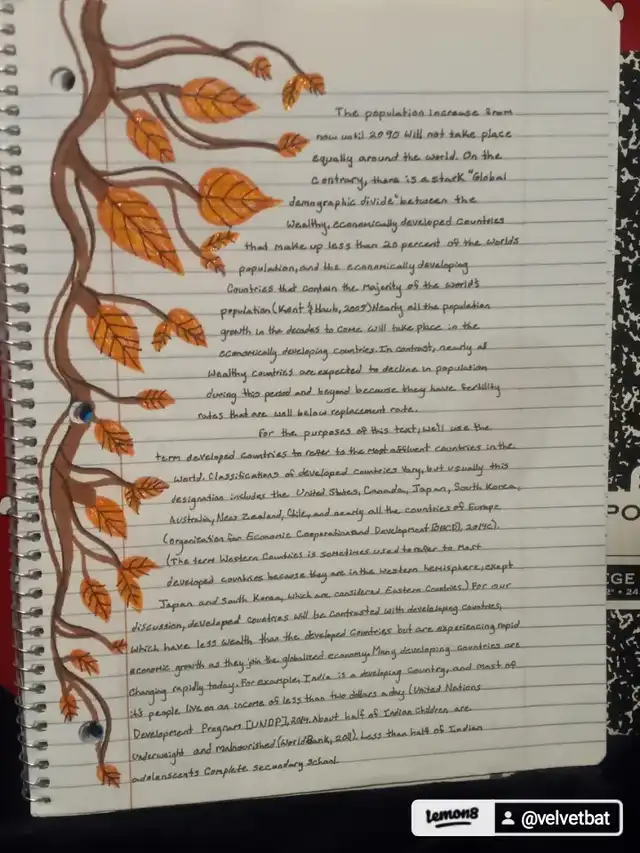 The population increase from
now until 2090 will not take place
equally around the world. On the
contrary, there is a stark "Global
demographic divide" between the
wealthy, economically developed countries
that make up less than 20 percent of the world's
population, and the economically developing
countries that contain the majority of the world's
population (Kent & Haub, 2005) Nearly all the population
growth in the decades to come will take place in the
economically developing countries. In contrast, nearly all
wealthy countries are expected to decline in population
during this period and beyond because they have fertility
rates that are well below replacement rate.
For the purposes of this text, we'll use the
term developed countries to refer to the most affluent countries in the
world. Classifications of developed countries vary, but usually this
designation includes the United States, Canada, Japan, South Korea,
Australia, New Zealand, Chile, and nearly all the countries of Europe
(organization for Economic Cooperation and Development [OECD], 2014c).
(The term Western Countries is sometimes used to refer to most
developed countries because they are in the western hemisphere, exept
Japan and South Korea, which are considered Eastern Countries.) For our
discussion, developed countries will be contrasted with developing countries,
which have less wealth than the developed countries but are experiencing rapid
economic growth as they join the globalized economy. Many developing countries are
changing rapidly today. For example, India is a developing country, and most of
it's people live on an income of less than two dollars a day (United Nations
Development Program [UNDP], 2014. About half of Indian children are
underweight and malnourished (World Bank, 2011). Less than half of Indian
adolenscents complete secondary school.
PO
EGE
lemon8
@velvetbat